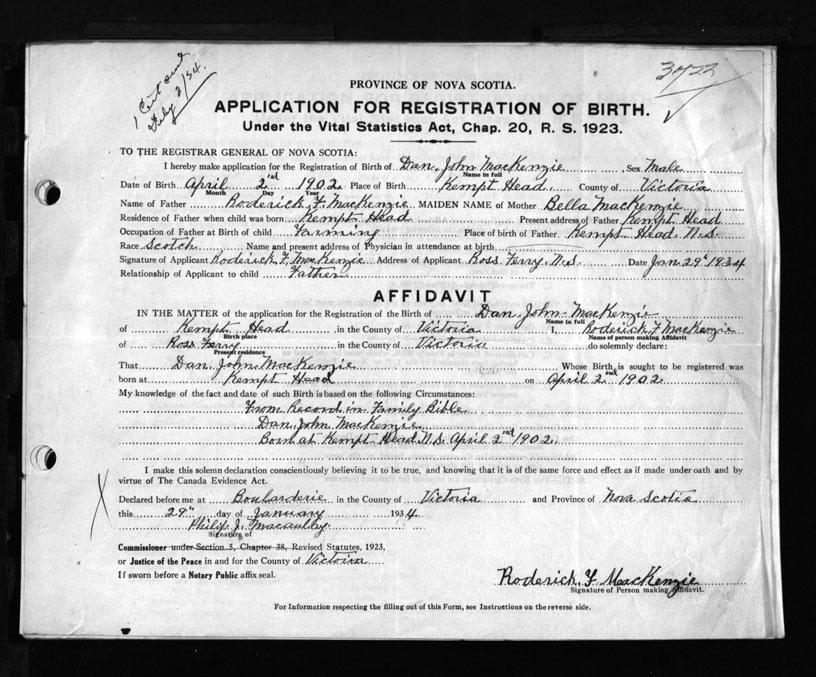 1 Cert sent
July 3/34.
3722
PROVINCE OF NOVA SCOTIA.
APPLICATION FOR REGISTRATION OF BIRTH.
Under the Vital Statistics Act, Chap. 20, R. S. 1923.
TO THE REGISTRAR GENERAL OF NOVA SCOTIA:
I hereby make application for the Registration of Birth of Dan. John MacKenzie Sex Male
Name in full
Date of Birth April 2nd 1902 Place of Birth Kempt Head. County of Victoria
Month Day Year
Name of Father Roderick F MacKenzie MAIDEN NAME of Mother Bella MacKenzie
Residence of Father when child was born Kempt Head Present address of Father Kempt Head
Occupation of Father at Birth of child Farming Place of birth of Father Kempt Head. N.S.
Race Scotch Name and present address of Physician in attendance at birth
Signature of Applicant Roderick F. MacKenzie Address of Applicant Ross Ferry. N.S. Date Jan. 29th 1934
Relationship of Applicant to child Father
AFFIDAVIT
IN THE MATTER of the application for the Registration of the Birth of Dan. John MacKenzie
Name in full
of Kempt Head in the County of Victoria I, Roderick F MacKenzie
Birth place Name of person making Affidavit
of Ross Ferry in the County of Victoria do solemnly declare:
Present residence
That Dan. John MacKenzie Whose Birth is sought to be registered was
born at Kempt Head on April 2nd 1902
My knowledge of the fact and date of such Birth is based on the following Circumstances:
From Record in Family Bible
Dan. John MacKenzie
Born at Kempt Head N.S. April 2nd 1902.
I make this solemn declaration conscientiously believing it to be true, and knowing that it is of the same force and effect as if made under oath and by
virtue of The Canada Evidence Act.
Declared before me at Boularderie in the County of Victoria and Province of Nova Scotia
this 29th day of January 1934
Philip J. Macaulay
Signature of
Commissioner under Section 5, Chapter 38, Revised Statutes, 1923,
or Justice of the Peace in and for the County of Victoria
If sworn before a Notary Public affix seal.
Roderick F MacKenzie
Signature of Person making Affidavit.
For Information respecting the filling out of this Form, see Instructions on the reverse side.